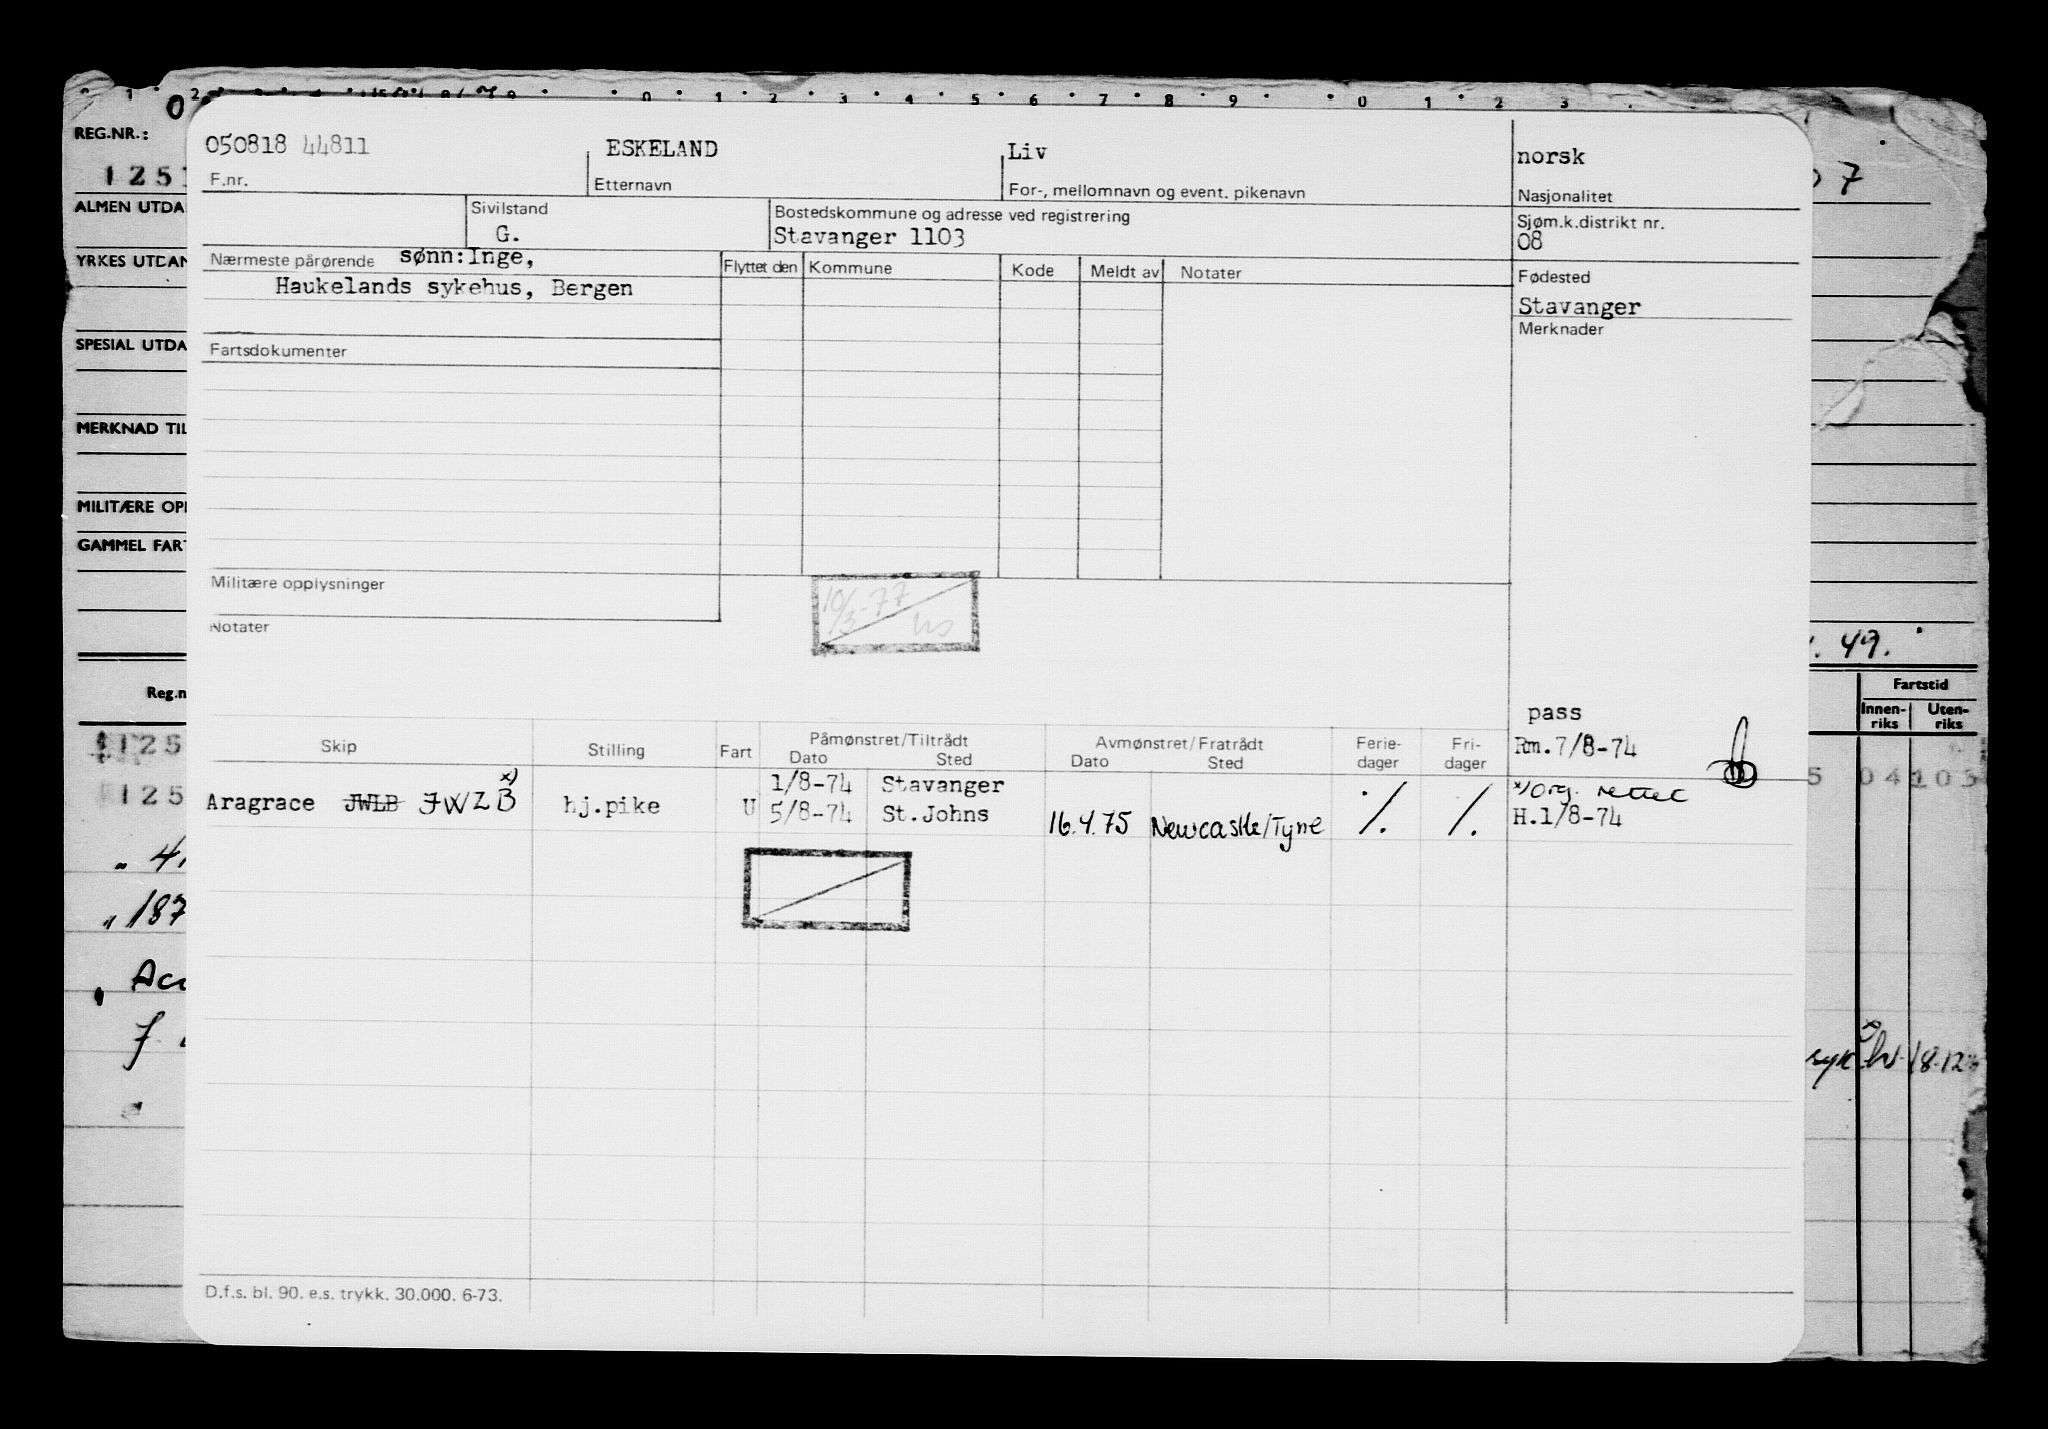 050818 44811
ESKELAND
Liv
norsk
F.nr.
Etternavn
For-, mellomnavn og event. pikenavn
Nasjonalitet
Sivilstand
G.
Bostedskommune og adresse ved registrering
Stavanger 1103
Sjøm.k.distrikt nr.
08
Nærmeste pårørende sønn:Inge,
Haukelands sykehus, Bergen
Flyttet den
Kommune
Kode
Meldt av
Notater
Fødested
Stavanger
Merknader
Fartsdokumenter
Militære opplysninger
Notater
10/3-77
pass
Rm.7/8-74
Skip
Stilling
Fart
Påmønstret/Tiltrådt
Dato
Sted
Avmønstret/Fratrådt
Dato
Sted
Ferie-
dager
Fri-
dager
Aragrace JWLB JWZB x)
hj.pike
U
1/8-74 Stavanger
5/8-74 St.Johns
16.4.75 Newcastle/Tyne
./.
./.
x) Org. rettet
H.1/8-74
D.f.s. bl. 90. e.s. trykk. 30.000. 6-73.
REG.NR.:
1251
ALMEN UTDA
YRKES UTDAN
SPESIAL UTDA
MERKNAD TIL
MILITÆRE OPP
GAMMEL FART
Reg.n
125
125
" 187
7
49.
Fartstid
Innen-
riks
Uten-
riks
5 04 103
18.12